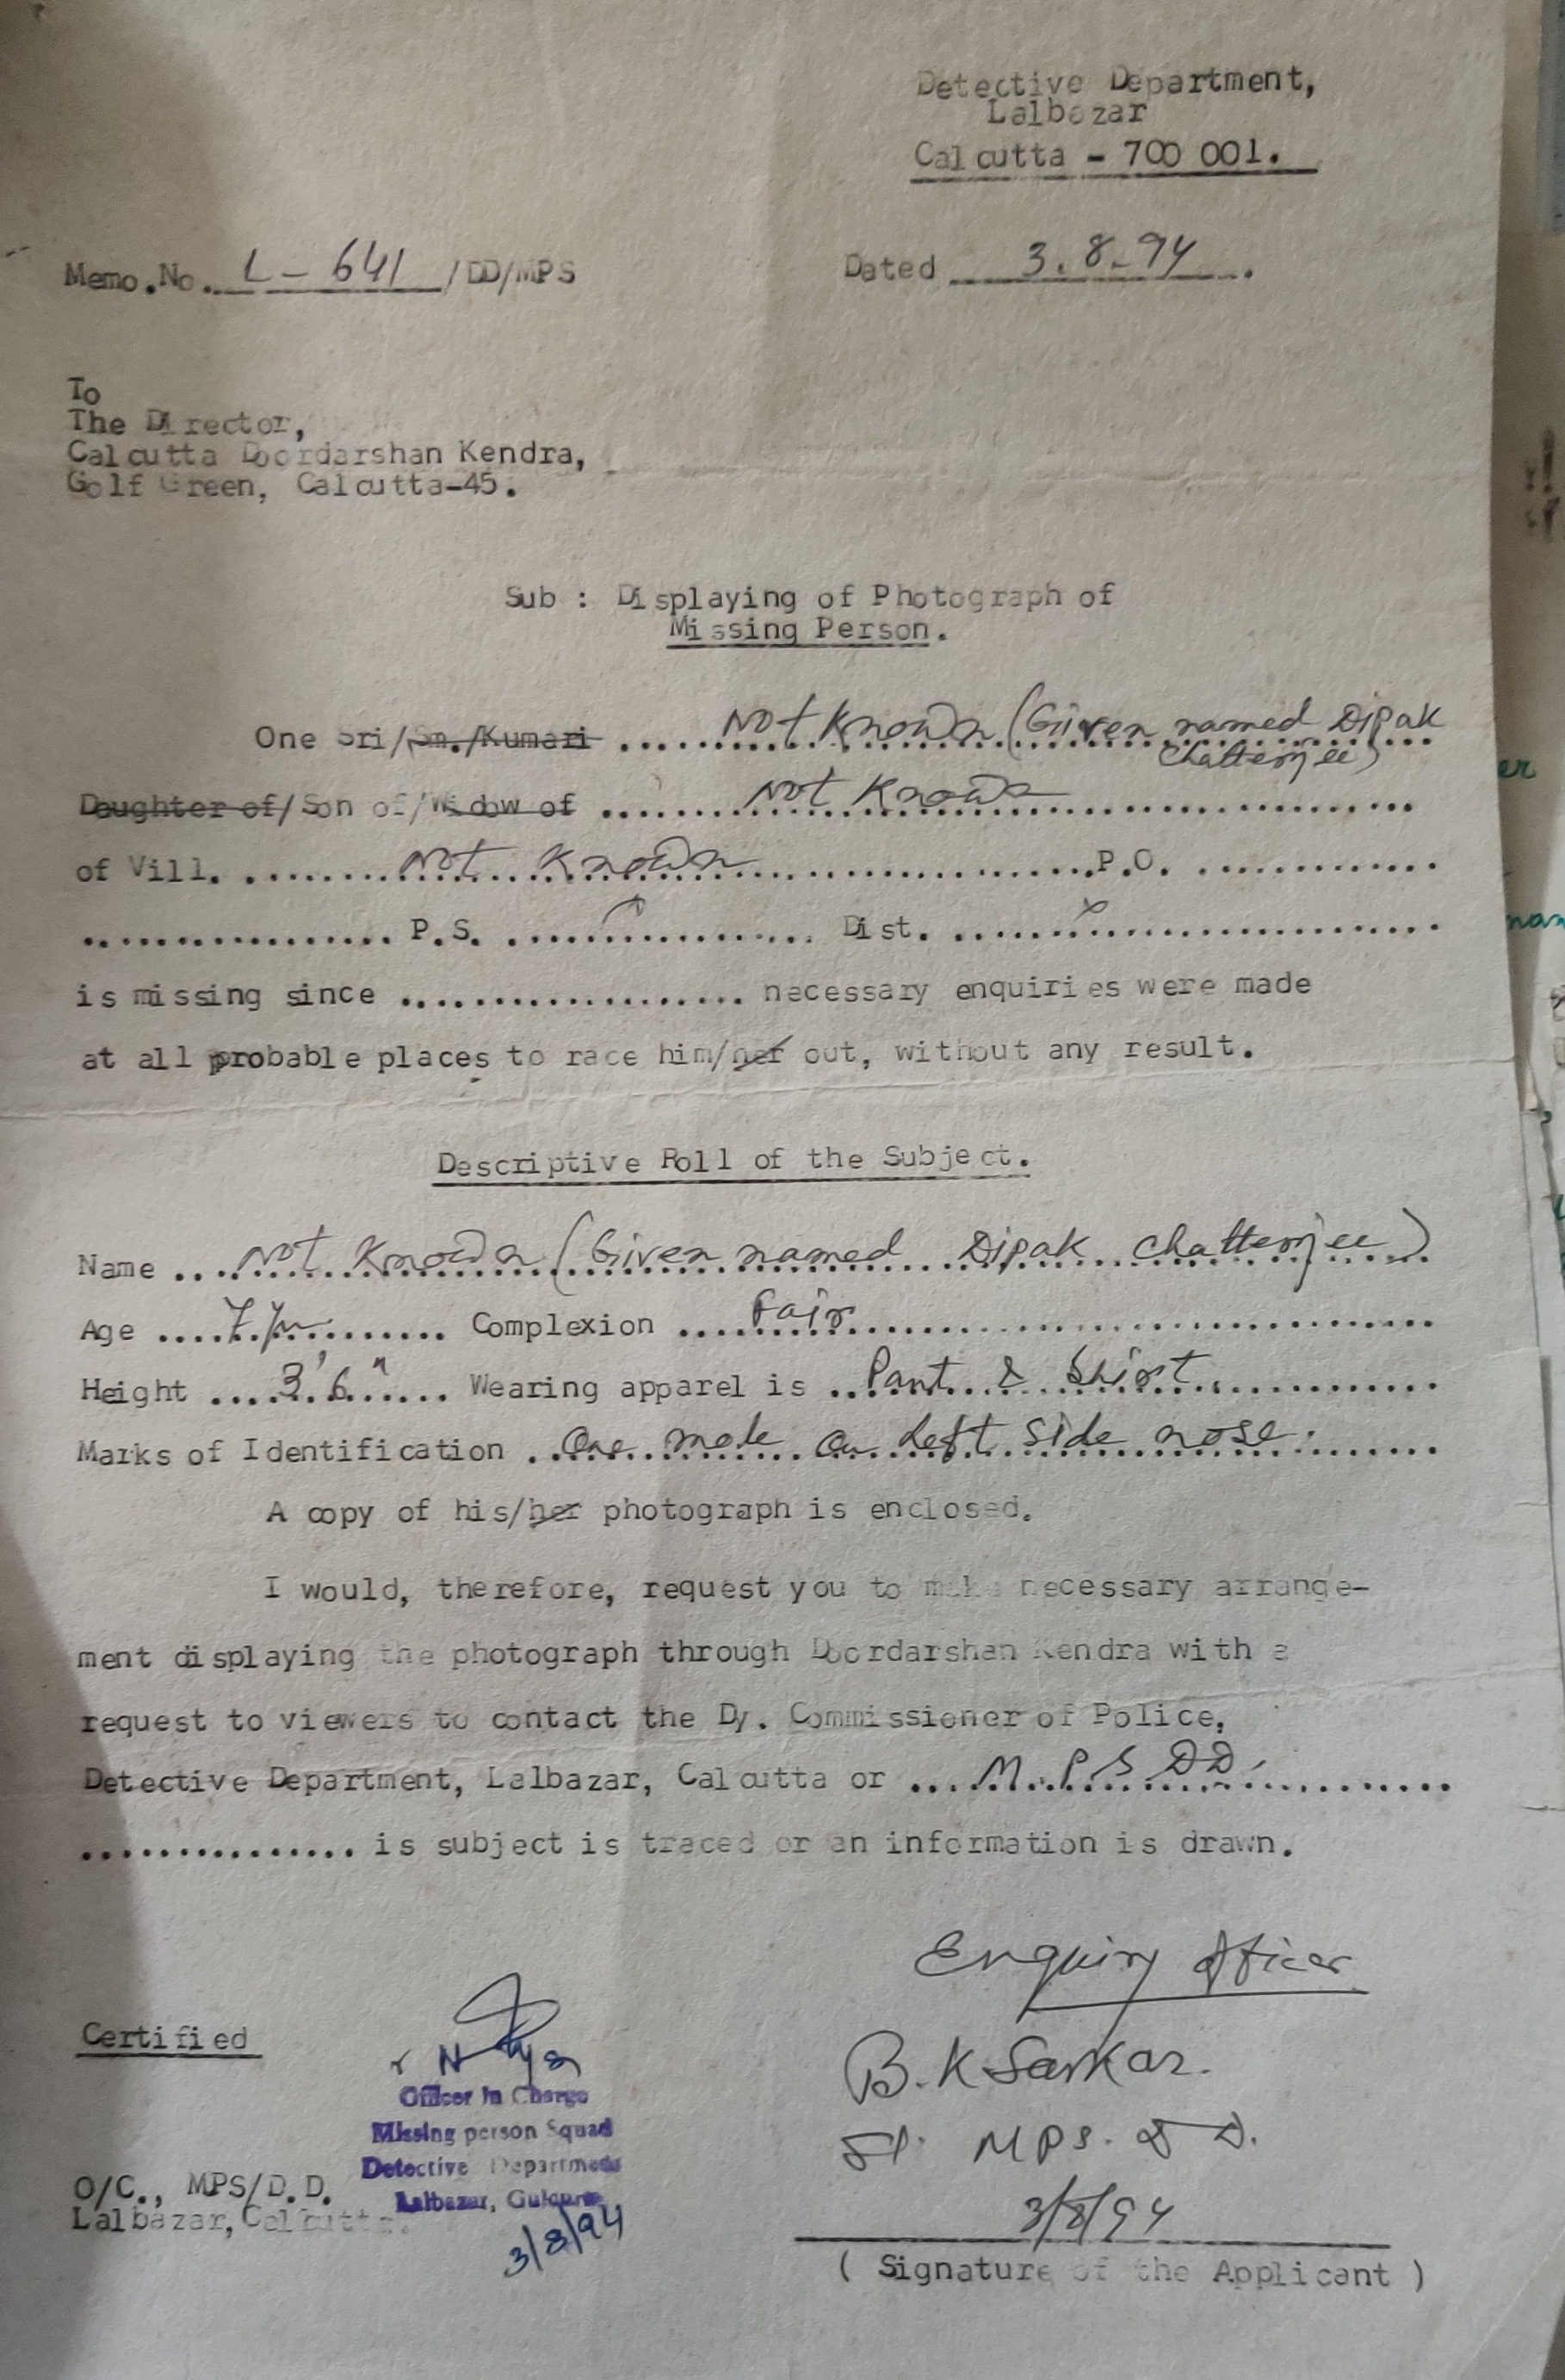 Detective Department,
Lalbazar
Calcutta - 700 001.
Memo.No. L - 641 /DD/MPS
Dated 3.8-94.
To
The Director,
Calcutta Doordarshan Kendra,
Golf Green, Calcutta-45.
Sub : Displaying of Photograph of
Missing Person.
One Sri/Sm./Kumari ..... Not Known (Given named Dipak
Chatterjee)
Daughter of/Son of/Widow of ..... Not Known .....
of Vill. ..... Not Known ..... P.O. .....
..... P.S. ..... Dist. .....
is missing since ..... necessary enquiries were made
at all probable places to race him/her out, without any result.
Descriptive Roll of the Subject.
Name .... Not Known (Given named Dipak Chatterjee)
Age .... 7 ..... Complexion .... Fair .....
Height .... 3' 6" .... Wearing apparel is .. Pant & Shirt .....
Marks of Identification .. One mole on left side nose. .....
A copy of his/her photograph is enclosed.
I would, therefore, request you to make necessary arrange-
ment displaying the photograph through Doordarshan Kendra with a
request to viewers to contact the Dy. Commissioner of Police,
Detective Department, Lalbazar, Calcutta or .... M.P.S DD. .....
............... is subject is traced or an information is drawn.
Enquiry Officer
Certified
B.K Sarkar.
MPS. DD.
3/8/94
( Signature of the Applicant )
Officer in Charge
Missing person Squad
Detective Department
Lalbazar,
3/8/94
O/C., MPS/D.D.
Lalbazar, Calcutta.